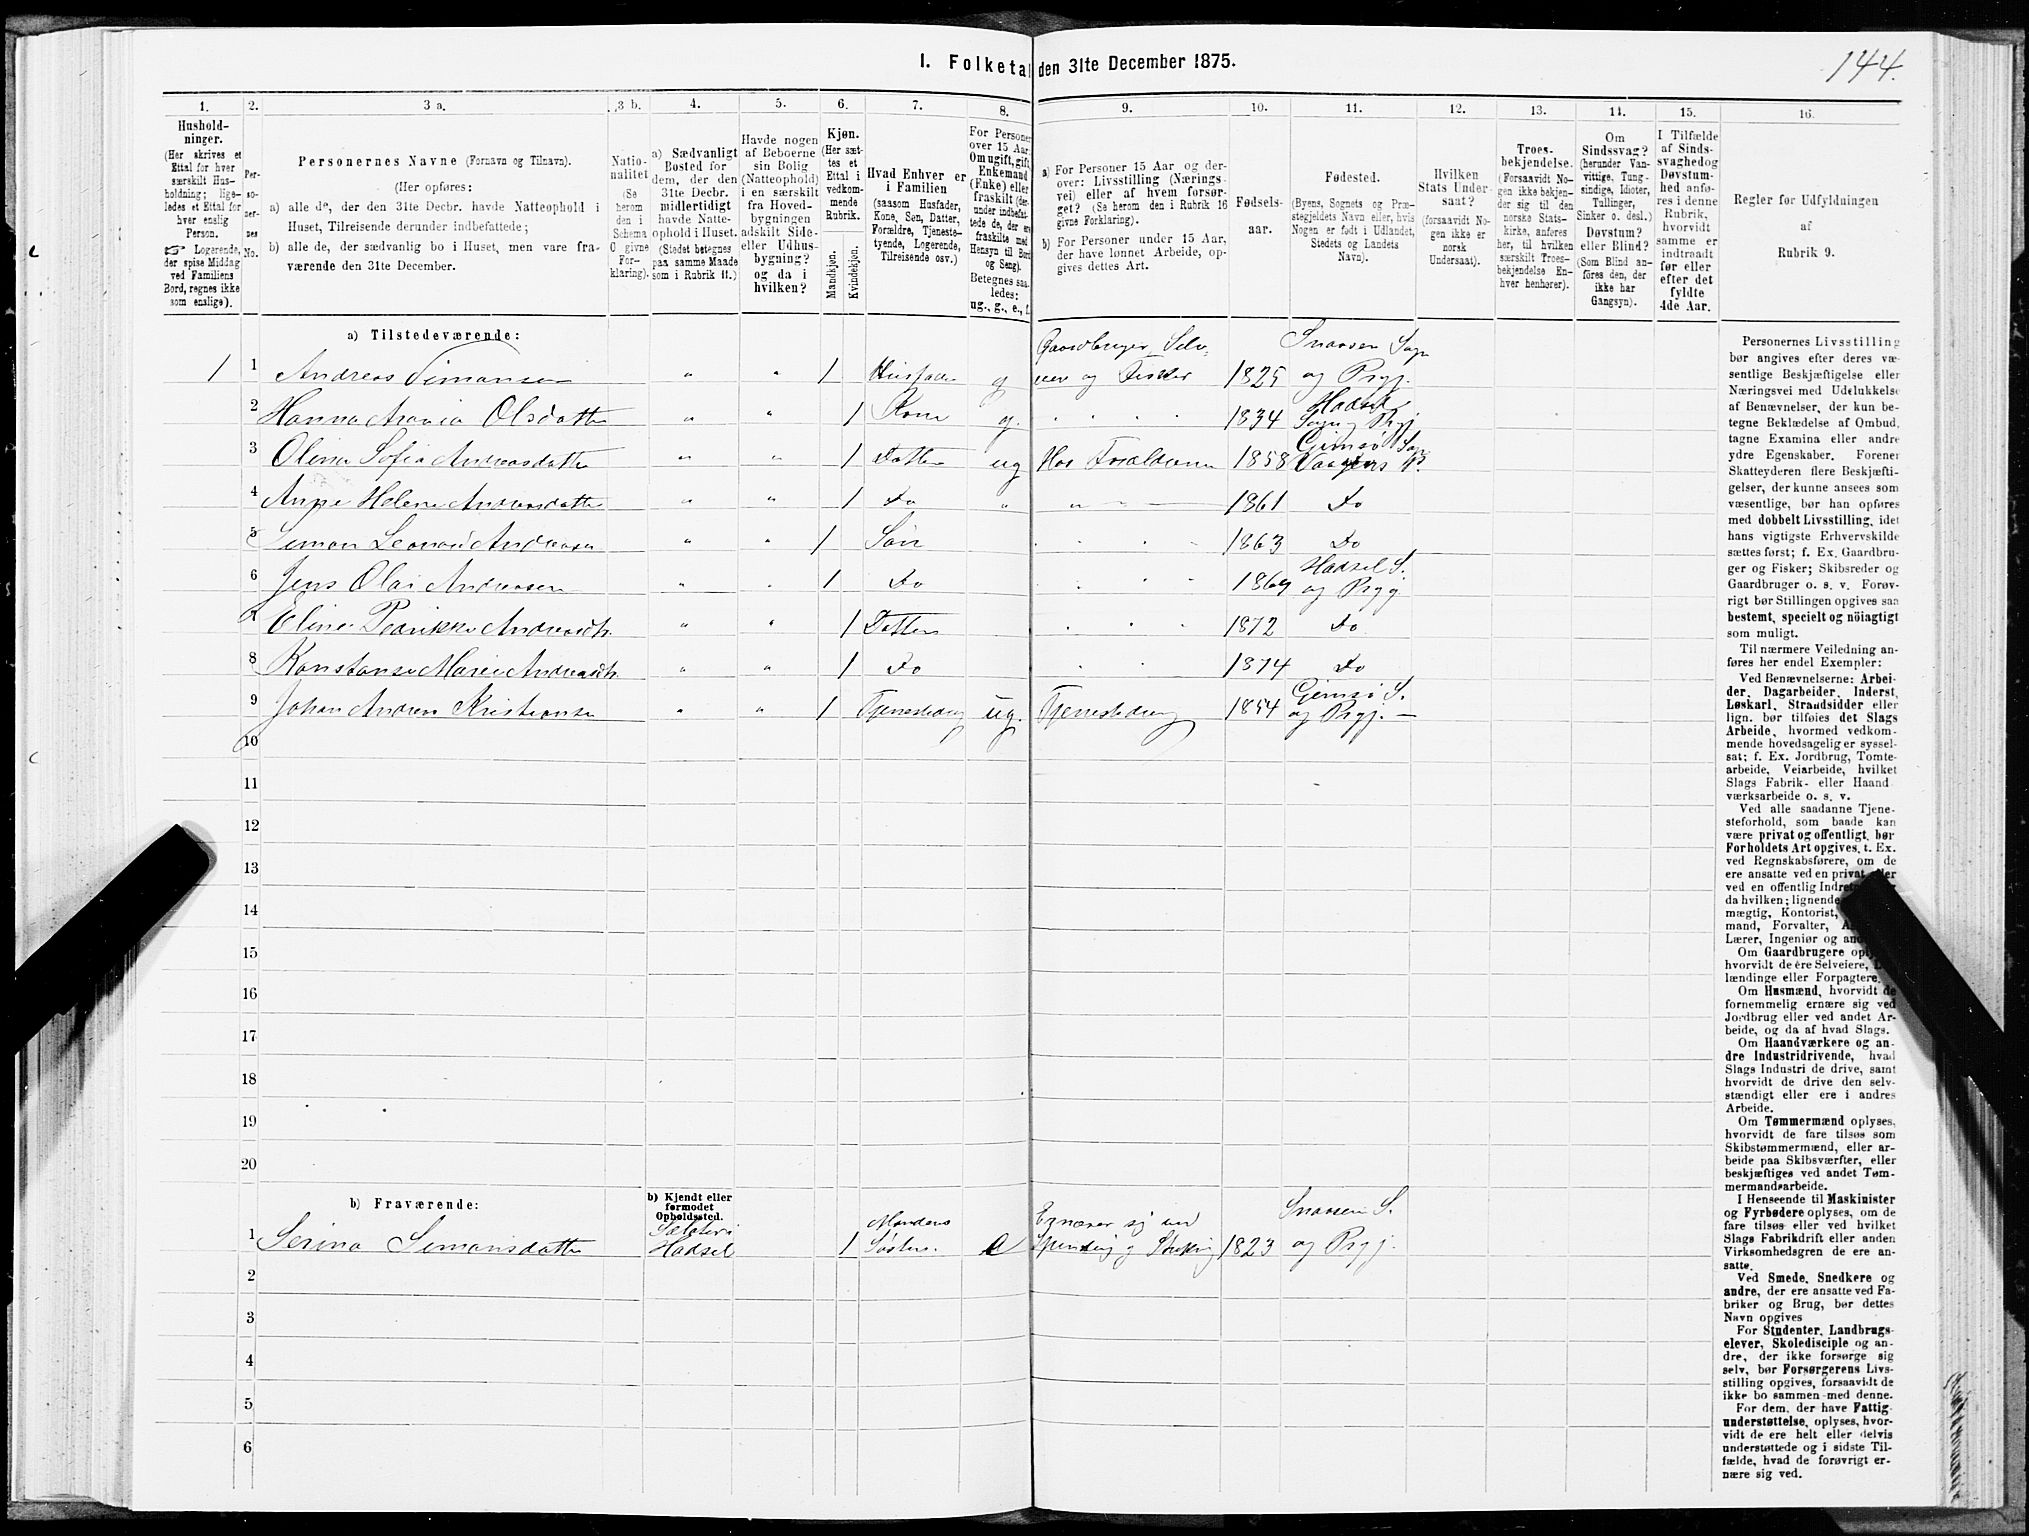 144.
I. Folketal den 31te December 1875.
1. 2. 3 a. 3 b. 4. 5. 6. 7. 8. 9. 10. 11. 12. 13. 14. 15. 16.
Hushold-
ninger.
(Her skrives et
Ettal for hver
særskilt Hus-
holdning; lige-
ledes et Ettal for
hver enslig
Person.
☞ Logerende,
der spise Middag
ved Familiens
Bord, regnes ikke
som enslige).
Per-
so-
ner-
nes
No.
Personernes Navne (Fornavn og Tilnavn).
(Her opføres:
a) alle de, der den 31te Decbr. havde Natteophold i
Huset, Tilreisende derunder indbefattede;
b) alle de, der sædvanlig bo i Huset, men vare fra-
værende den 31te December.
Natio-
nalitet
(Se
herom
den i
Schema
O givne
For-
klaring).
a) Sædvanligt
Bosted for
dem, der den
31te Decbr.
midlertidigt
havde Natte-
ophold i Huset.
(Stedet betegnes
paa samme Maade
som i Rubrik 11.)
Havde nogen
af Beboerne
sin Bolig
(Natteophold)
i en særskilt
fra Hoved-
bygningen
adskilt Side-
eller Udhus-
bygning?
og da i
hvilken?
Kjøn.
(Her sæt-
tes et
Ettal i
vedkom-
mende
Rubrik.
Mandkjøn.
Kvindekjøn.
Hvad Enhver er
i Familien
(saasom Husfader,
Kone, Søn, Datter,
Forældre, Tjeneste-
tyende, Logerende,
Tilreisende osv.)
For Personer
over 15 Aar:
Om ugift, gift,
Enkemand
(Enke) eller
fraskilt (der-
under indbefat-
tede de, der ere
fraskilte med
Hensyn til Bord
og Seng).
Betegnes saa-
ledes:
ug., g., e., f.
a) For Personer 15 Aar og der-
over: Livsstilling (Nærings-
vei) eller af hvem forsør-
get? (Se herom den i Rubrik 16
givne Forklaring).
b) For Personer under 15 Aar,
der have lønnet Arbeide, op-
gives dettes Art.
Fødsels-
aar.
Fødested.
(Byens, Sognets og Præ-
stegjeldets Navn eller, hvis
Nogen er født i Udlandet,
Stedets og Landets
Navn).
Hvilken
Stats Under-
saat?
(forsaavidt No-
gen ikke er
norsk
Undersaat).
Troes-
bekjendelse.
(Forsaavidt No-
gen ikke bekjen-
der sig til den
norske Stats-
kirke, anføres
her, til hvilken
særskilt Troes-
bekjendelse En-
hver henhører).
Om
Sindssvag?
(herunder Van-
vittige, Tung-
sindige, Idioter,
Tullinger,
Sinker o. desl.)
Døvstum?
eller Blind?
(Som Blind an-
føres den, der
ikke har
Gangsyn).
I Tilfælde
af Sinds-
svaghed og
Døvstum-
hed anfø-
res i denne
Rubrik,
hvorvidt
samme er
indtraadt
før eller
efter det
fyldte
4de Aar.
Regler for Udfyldningen
af
Rubrik 9.
a) Tilstedeværende:
Gaardbruger Selv Snaasen Sogn
1 1 Andreas Simonsen " " 1 Husfader g eier og Fisker 1825 og Prgj.
2 Hanna Maria Olsdatter " " 1 Kone g. " " " " 1834 Hadsel Sogn og Prgj
3 Olina Sofia Andreasdatter " " 1 Datter ug Hos Forældrene 1858 Gimsø Sogn Vaagens P
4 Anne Helene Andreasdatter " " 1 Do " " 1861 Do
5 Simon Leonard Andreasen " " 1 Søn " " " 1863 Do
6 Jens Olai Andreasen " " 1 Do " " " 1869 Hadsel S. og Prgj
7 Eline Pedrikke Andreasdtr. " " 1 Datter " " " 1872 Do
8 Konstanse Marie Andreasdtr. " " 1 Do " " 1874 Do
9 Johan Andreas Kristiansen " " 1 Tjenestedreng ug. Tjenestedreng 1854 Gimsø S. og Prgj. —
10
11
12
13
14
15
16
17
18
19
20
b) Fraværende:
b) Kjendt eller
formodet
Opholdssted.
1 Serina Simonsdatter Hadsel 1 Mandens Søster. e Ernærer sig ved Spinding og Strikking 1823 Snaasen S. og Prgj.
2
3
4
5
6
Personernes Livsstilling
bør angives efter deres væ-
sentlige Beskjæftigelse eller
Næringsvei med Udelukkelse
af Benævnelser, der kun be-
tegne Beklædelse af Ombud,
tagne Examina eller andre
ydre Egenskaber. Forener
Skatteyderen flere Beskjæfti-
gelser, der kunne ansees som
væsentlige, bør han opføres
med dobbelt Livsstilling, idet
hans vigtigste Erhvervskilde
sættes først; f. Ex. Gaardbru-
ger og Fisker; Skibsreder og
Gaardbruger o. s. v. Forøv-
rigt bør Stillingen opgives saa
bestemt, specielt og nöiagtigt
som muligt.
Til nærmere Veiledning an-
føres her endel Exempler:
Ved Benævnelserne: Arbei-
der, Dagarbeider, Inderst,
Løskarl, Strandsidder eller
lign. bør tilføies det Slags
Arbeide, hvormed vedkom-
mende hovedsagelig er syssel-
sat; f. Ex. Jordbrug, Tomte-
arbeide, Veiarbeide, hvilket
Slags Fabrik- eller Haand
værksarbeide o. s. v.
Ved alle saadanne Tjene-
steforhold, som baade kan
være privat og offentligt, bør
Forholdets Art opgives, t. Ex.
ved Regnskabsførere, om de
ere ansatte ved en privat eller
ved en offentlig Indret
da hvilken; lignende
mægtig, Kontorist,
mand, Forvalter,
Lærer, Ingeniør og and
Om Gaardbrugere oply
hvorvidt de ere Selveiere,
lændinge eller Forpagtere.
Om Husmænd, hvorvidt de
fornemmelig ernære sig ved
Jordbrug eller ved andet Ar-
beide, og da af hvad Slags.
Om Haandværkere og an-
dre Industridrivende, hvad
Slags Industri de drive, samt
hvorvidt de drive den selv-
stændigt eller ere i andres
Arbeide.
Om Tømmermænd oplyses,
hvorvidt de fare tilsøs som
Skibstømmermænd, eller ar-
beide paa Skibsværfter, eller
beskjæftiges ved andet Tøm-
mermandsarbeide.
I Henseende til Maskinister
og Fyrbødere oplyses, om de
fare tilsøs eller ved hvilket
Slags Fabrikdrift eller anden
Virksomhedsgren de ere an-
satte.
Ved Smede, Snedkere og
andre, der ere ansatte ved Fa-
briker og Brug, bør dettes
Navn opgives
For Studenter, Landbrugs-
elever, Skoledisciple og an-
dre, der ikke forsørge sig
selv, bør Forsørgerens Livs-
stilling opgives, forsaavidt de
ikke bo sammen med denne.
For dem, der have Fattig-
understøttelse, oplyses, hvor-
vidt de ere helt eller delvis
understøttede og i sidste Til-
fælde, hvad de forøvrigt er-
nære sig ved.